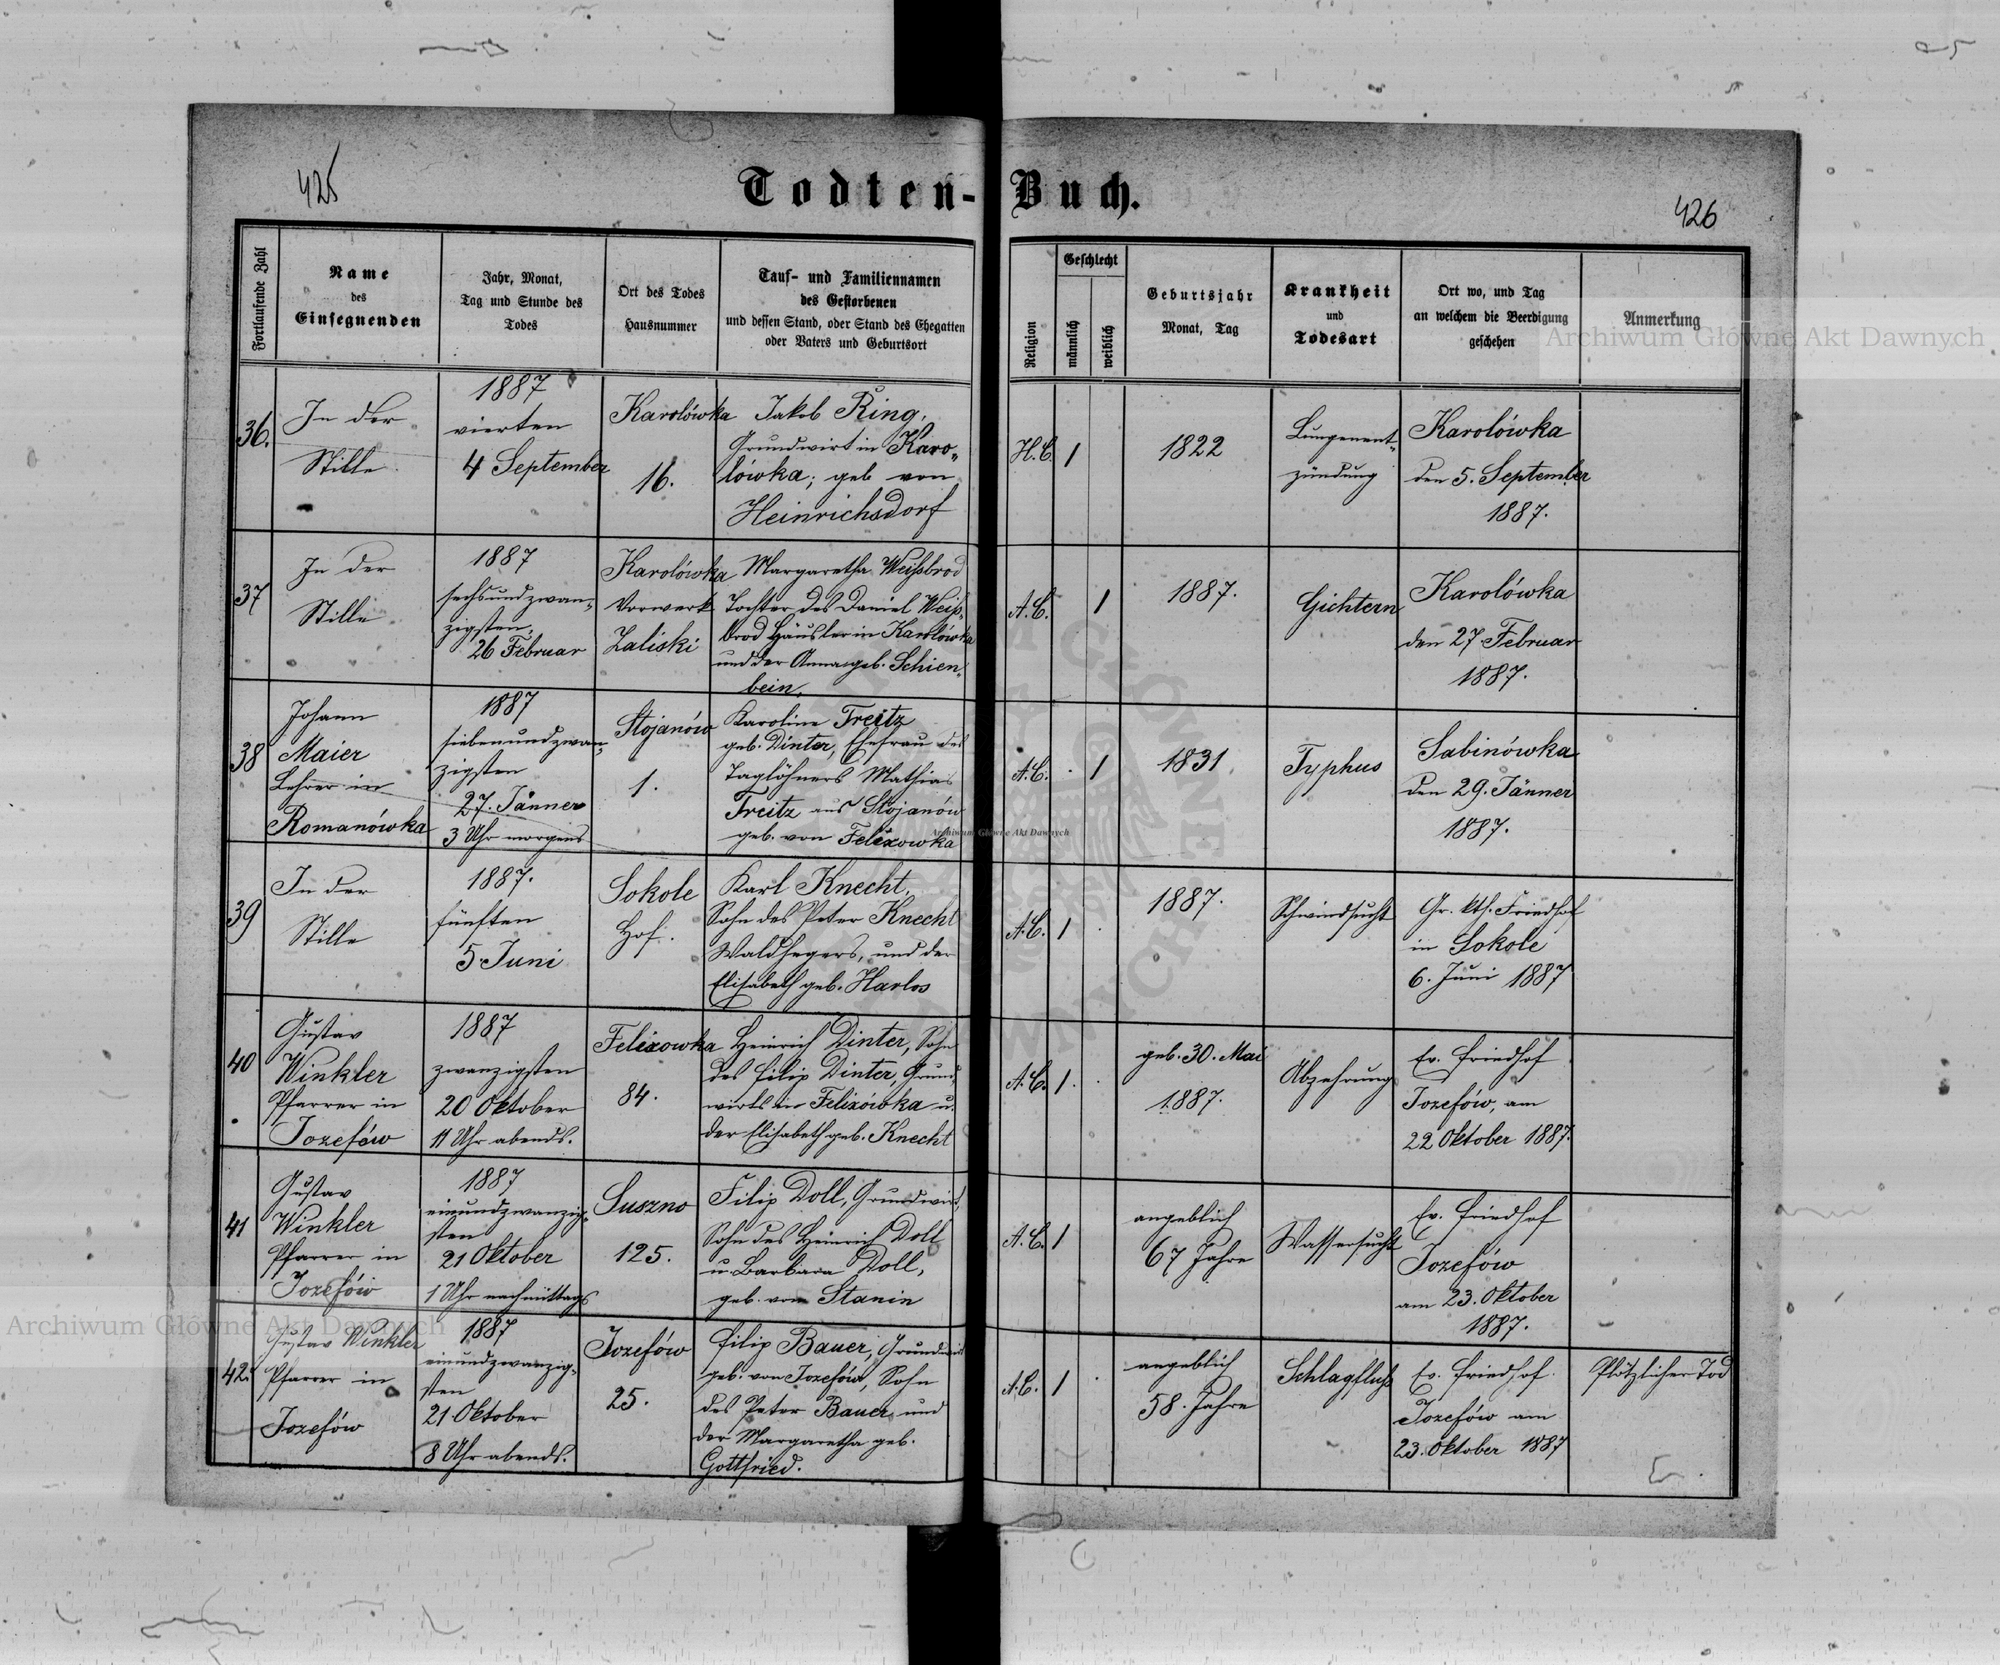 425
Todten-Buch.
426
Fortlaufende Zahl
Name
des
Einsegnenden
Jahr, Monat,
Tag und Stunde des
Todes
Ort des Todes
Hausnummer
Tauf- und Familiennamen
des Gestorbenen
und dessen Stand, oder Stand des Ehegatten
oder Vaters und Geburtsort
Religion
Geschlecht
männlich
weiblich
Geburtsjahr
Monat, Tag
Krankheit
und
Todesart
Ort wo, und Tag
an welchem die Beerdigung
geschehen
Anmerkung
36.
In der
Stille
1887
vierten
4 September
Karolówka
16.
Jakob Ring,
Grundwirt in Karo-
lówka; geb von
Heinrichsdorf
H.C.
1
1822
Lungenent-
zündung
Karolówka
den 5. September
1887.
37
In der
Stille
1887
sechsundzwan-
zigsten
26 Februar
Karolówka
Vorwerk
Zaliski
Margaretha Weißbrod
Tochter des Daniel Weiß-
brod Häusler in Karolówka
und der Anna geb. Schien-
bein.
A.C.
1
1887.
Gichtern
Karolówka
den 27 Februar
1887.
38
Johann
Maier
Lehrer in
Romanówka
1887
siebenundzwan-
zigsten
27. Jänner
3 Uhr morgens
Stojanów
1.
Karoline Treitz
geb. Dinter, Ehefrau des
Taglöhners Mathias
Treitz aus Stojanów
geb. von Felixowka
A.C.
1
1831
Typhus
Sabinówka
den 29. Jänner
1887.
39
In der
Stille
1887.
fünften
5. Juni
Sokole
Hof.
Karl Knecht,
Sohn des Peter Knecht
Waldhegers, und der
Elisabeth geb. Harlos
A.C.
1
1887.
Schwindsucht
Gr. kth. Friedhof
in Sokole
6. Juni 1887
40
Gustav
Winkler
Pfarrer in
Jozefów
1887
zwanzigsten
20 Oktober
11 Uhr abends.
Felixowka
84.
Heinrich Dinter, Sohn
des Filip Dinter, Grund-
wirts in Felixówka u.
der Elisabeth geb. Knecht
A.C.
1
geb. 30. Mai
1887.
Abzehrung
Ev. Friedhof
Jozefów, am
22 Oktober 1887.
41
Gustav
Winkler
Pfarrer in
Jozefów
1887
einundzwanzig-
sten
21 Oktober
1 Uhr nachmittags
Suszno
125.
Filip Doll, Grundwirt,
Sohn des Heinrich Doll
u. Barbara Doll,
geb. von Stanin
A.C.
1
angeblich
67 Jahre
Wassersucht
Ev. Friedhof
Jozefów
am 23. Oktober
1887.
42.
Gustav Winkler
Pfarrer in
Jozefów
1887
einundzwanzig-
sten
21 Oktober
8 Uhr abends.
Jozefów
25.
Filip Bauer, Grundwirt
geb. von Jozefów, Sohn
des Peter Bauer und
der Margaretha geb.
Gottfried.
A.C.
1
angeblich
58. Jahre
Schlagfluß
Ev. Friedhof.
Jozefów am
23. Oktober 1887
Plötzlicher Tod
Archiwum Główne Akt Dawnych
Archiwum Główne Akt Dawnych
Archiwum Główne Akt Dawnych